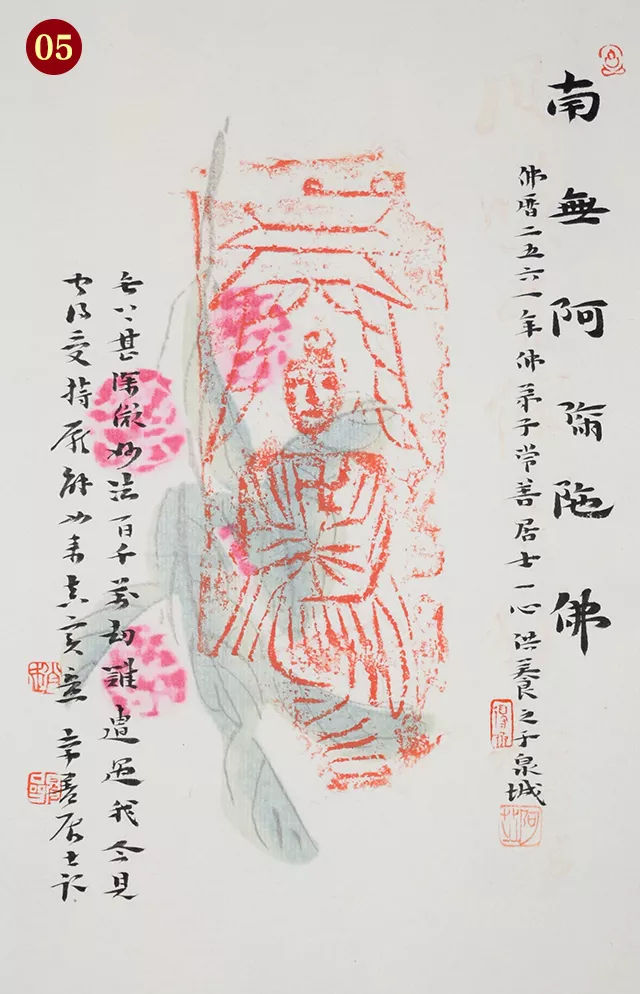 05
南無阿彌陀佛
佛曆二五六一年佛弟子常善居士一心供養之于泉城
無上甚深微妙法百千萬劫難遭遇我今見
聞得受持願解如來真實意 常善居士記